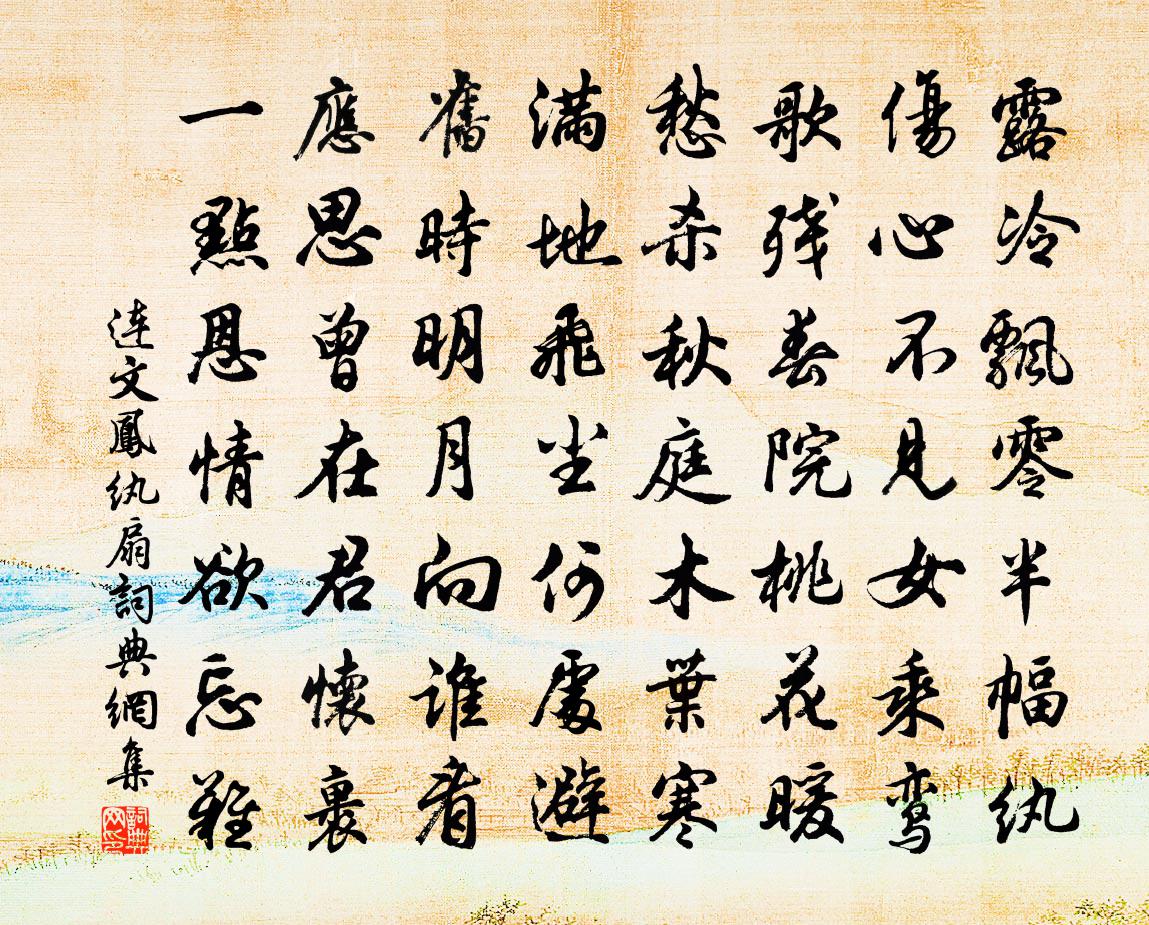 露冷飄零半幅紈
傷心不見女乘鸞
歌残春院桃花暖
愁杀秋庭木葉寒
滿地飛尘何處避
舊時明月向誰看
應思曾在君懷裏
一點恩情欲忘難
連文鳳紈扇詞典網集
詞典网印